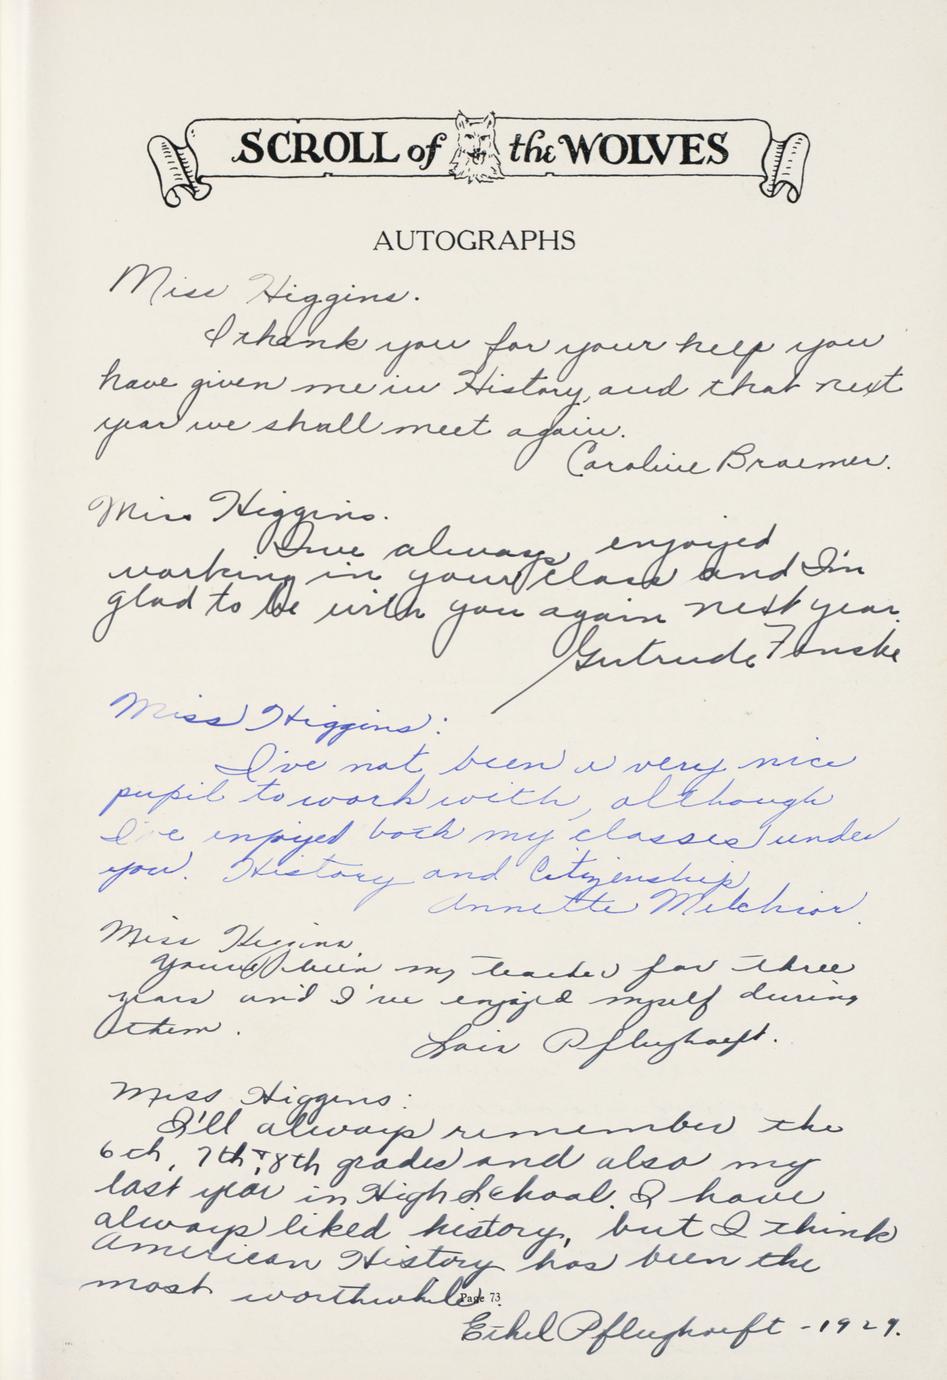 SCROLL of the WOLVES
AUTOGRAPHS
Miss Higgins.
I thank you for your help you
have given me in History, and that next
year we shall meet again.
Caroline Braemer.
Miss Higgins.
I've always enjoyed
working in your class and I'm
glad to be with you again next year.
Gertrude Fenske
Miss Higgins:
I've not been a very nice
pupil to work with, although
I've enjoyed both my classes under
you. History and Citizenship
Annette Melchior.
Miss Higgins
You've been my teacher for three
years and I've enjoyed myself during
them.
Lois Pflughoeft.
Miss Higgins:
I'll always remember the
6th, 7th, & 8th grades and also my
last year in High School. I have
always liked history, but I think
American History has been the
most worthwhile.
Page 73
Ethel Pflughoeft - 1929.